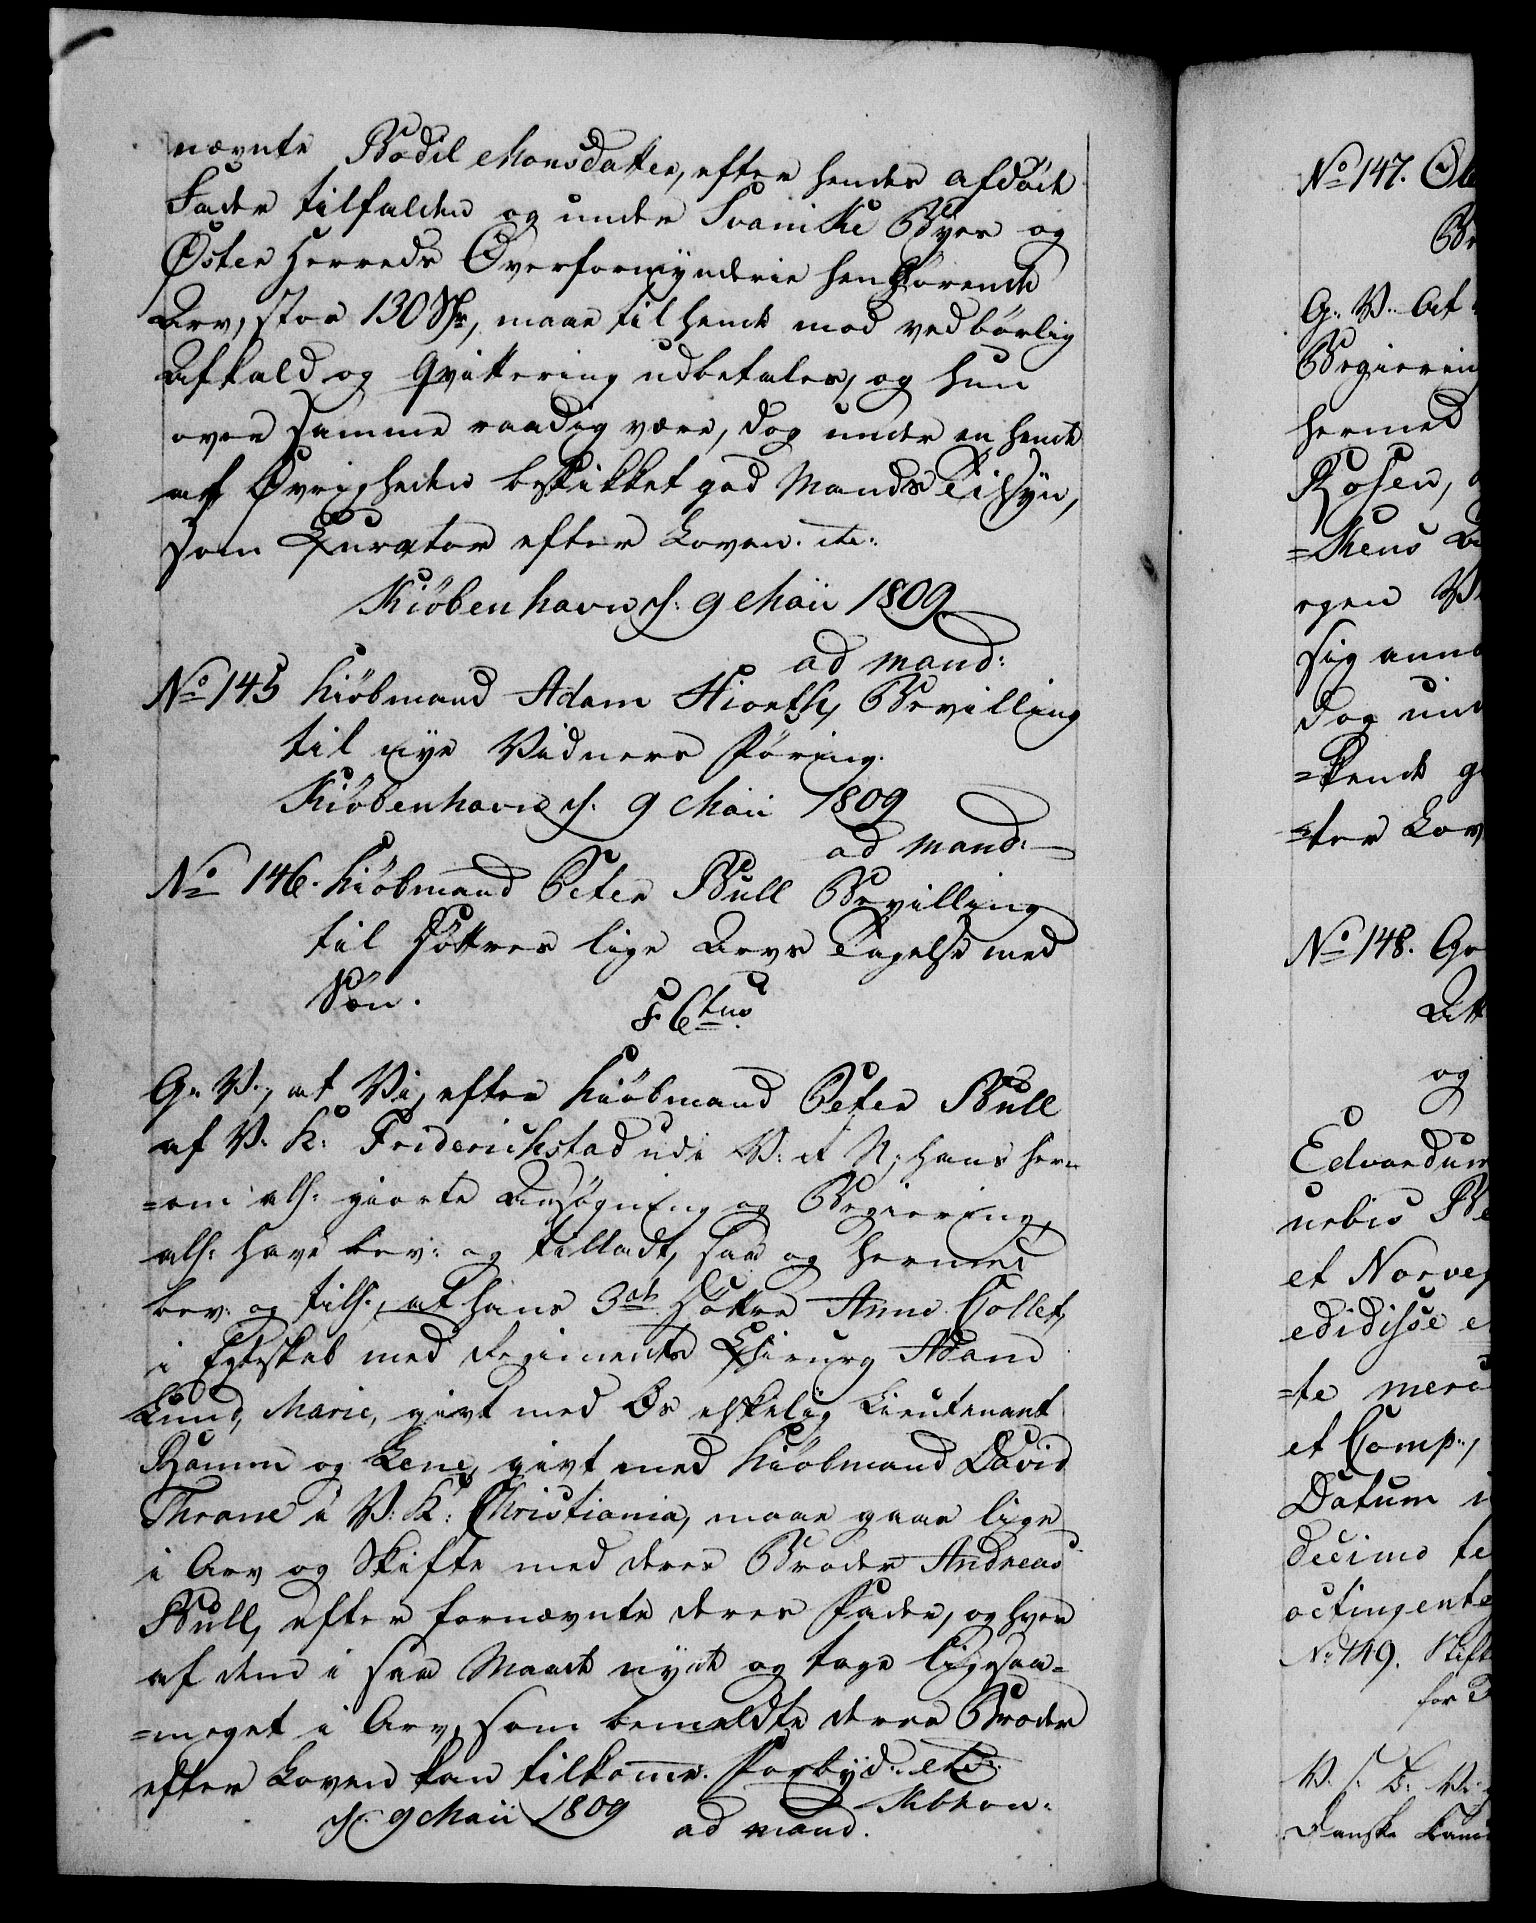 nævnte Bodil Monsdatter, efter hendes afdöde
Fader tilfalden og under Svanike Byes og
Öster Herreds Overformynderie henhörende
Arv, stor 130 Sp, maae til hende mod vedbörlig
Afkald og Qvittering udbetales, og hun
over samme raadig være, dog under en hende
af Övrigheden beskikket god Mands Tilsyn,
som Curator efter Loven. etc:
Kiöbenhavn d: 9 Maii 1809
ad mand:
No 145 Kiöbmand Adam Hiorth, Bevilling
til nye Vidners Föring.
Kiöbenhavn d. 9 Maii 1809
ad mand:
No 146. Kiöbmand Peter Bull Bevilling
til Döttres lige Arvs Tagelse med
Sön.
F. 6tus
G: V:, at Vi, efter Kiöbmand Peter Bull
af V. K: Friderichstad udi V: R: N: hans her-
=om alh: giorte Ansögning og Begiering,
alh: have bev: og tilladt, saa og hermed
bev: og till:, at hans 3de Döttre Anne Collet,
i Egteskab med Regiments Chirurg Adam
Lund, Marie, givt med Os elskelig Lieutenant
Hamm og Lene, givt med Kiöbmand David
Thrane i V: K: Christiania, maae gaae lige
i Arv og Skifte med deres Broder Andreas
Bull, efter fornævnte deres Fader, og hver
af dem i saa Maade nyde og tage ligesaa-
=meget i Arv, som bemeldte deres Broder
efter Loven kan tilkomme. Forbyd: etc:
Kbhvn:
d: 9 Maii 1809 ad mand.
No 147. Ole
G: V: At
Begiering
hermed
Rosen,
sig
dog und
=kende g
=ter Lov
No 148.
Att
og
Edvardum
nobis
et Norveg
edidisse
=te merc
et Comp:,
Datum
decimo
octingente
No 149. Skift
for
V. S. B: V:
Danske